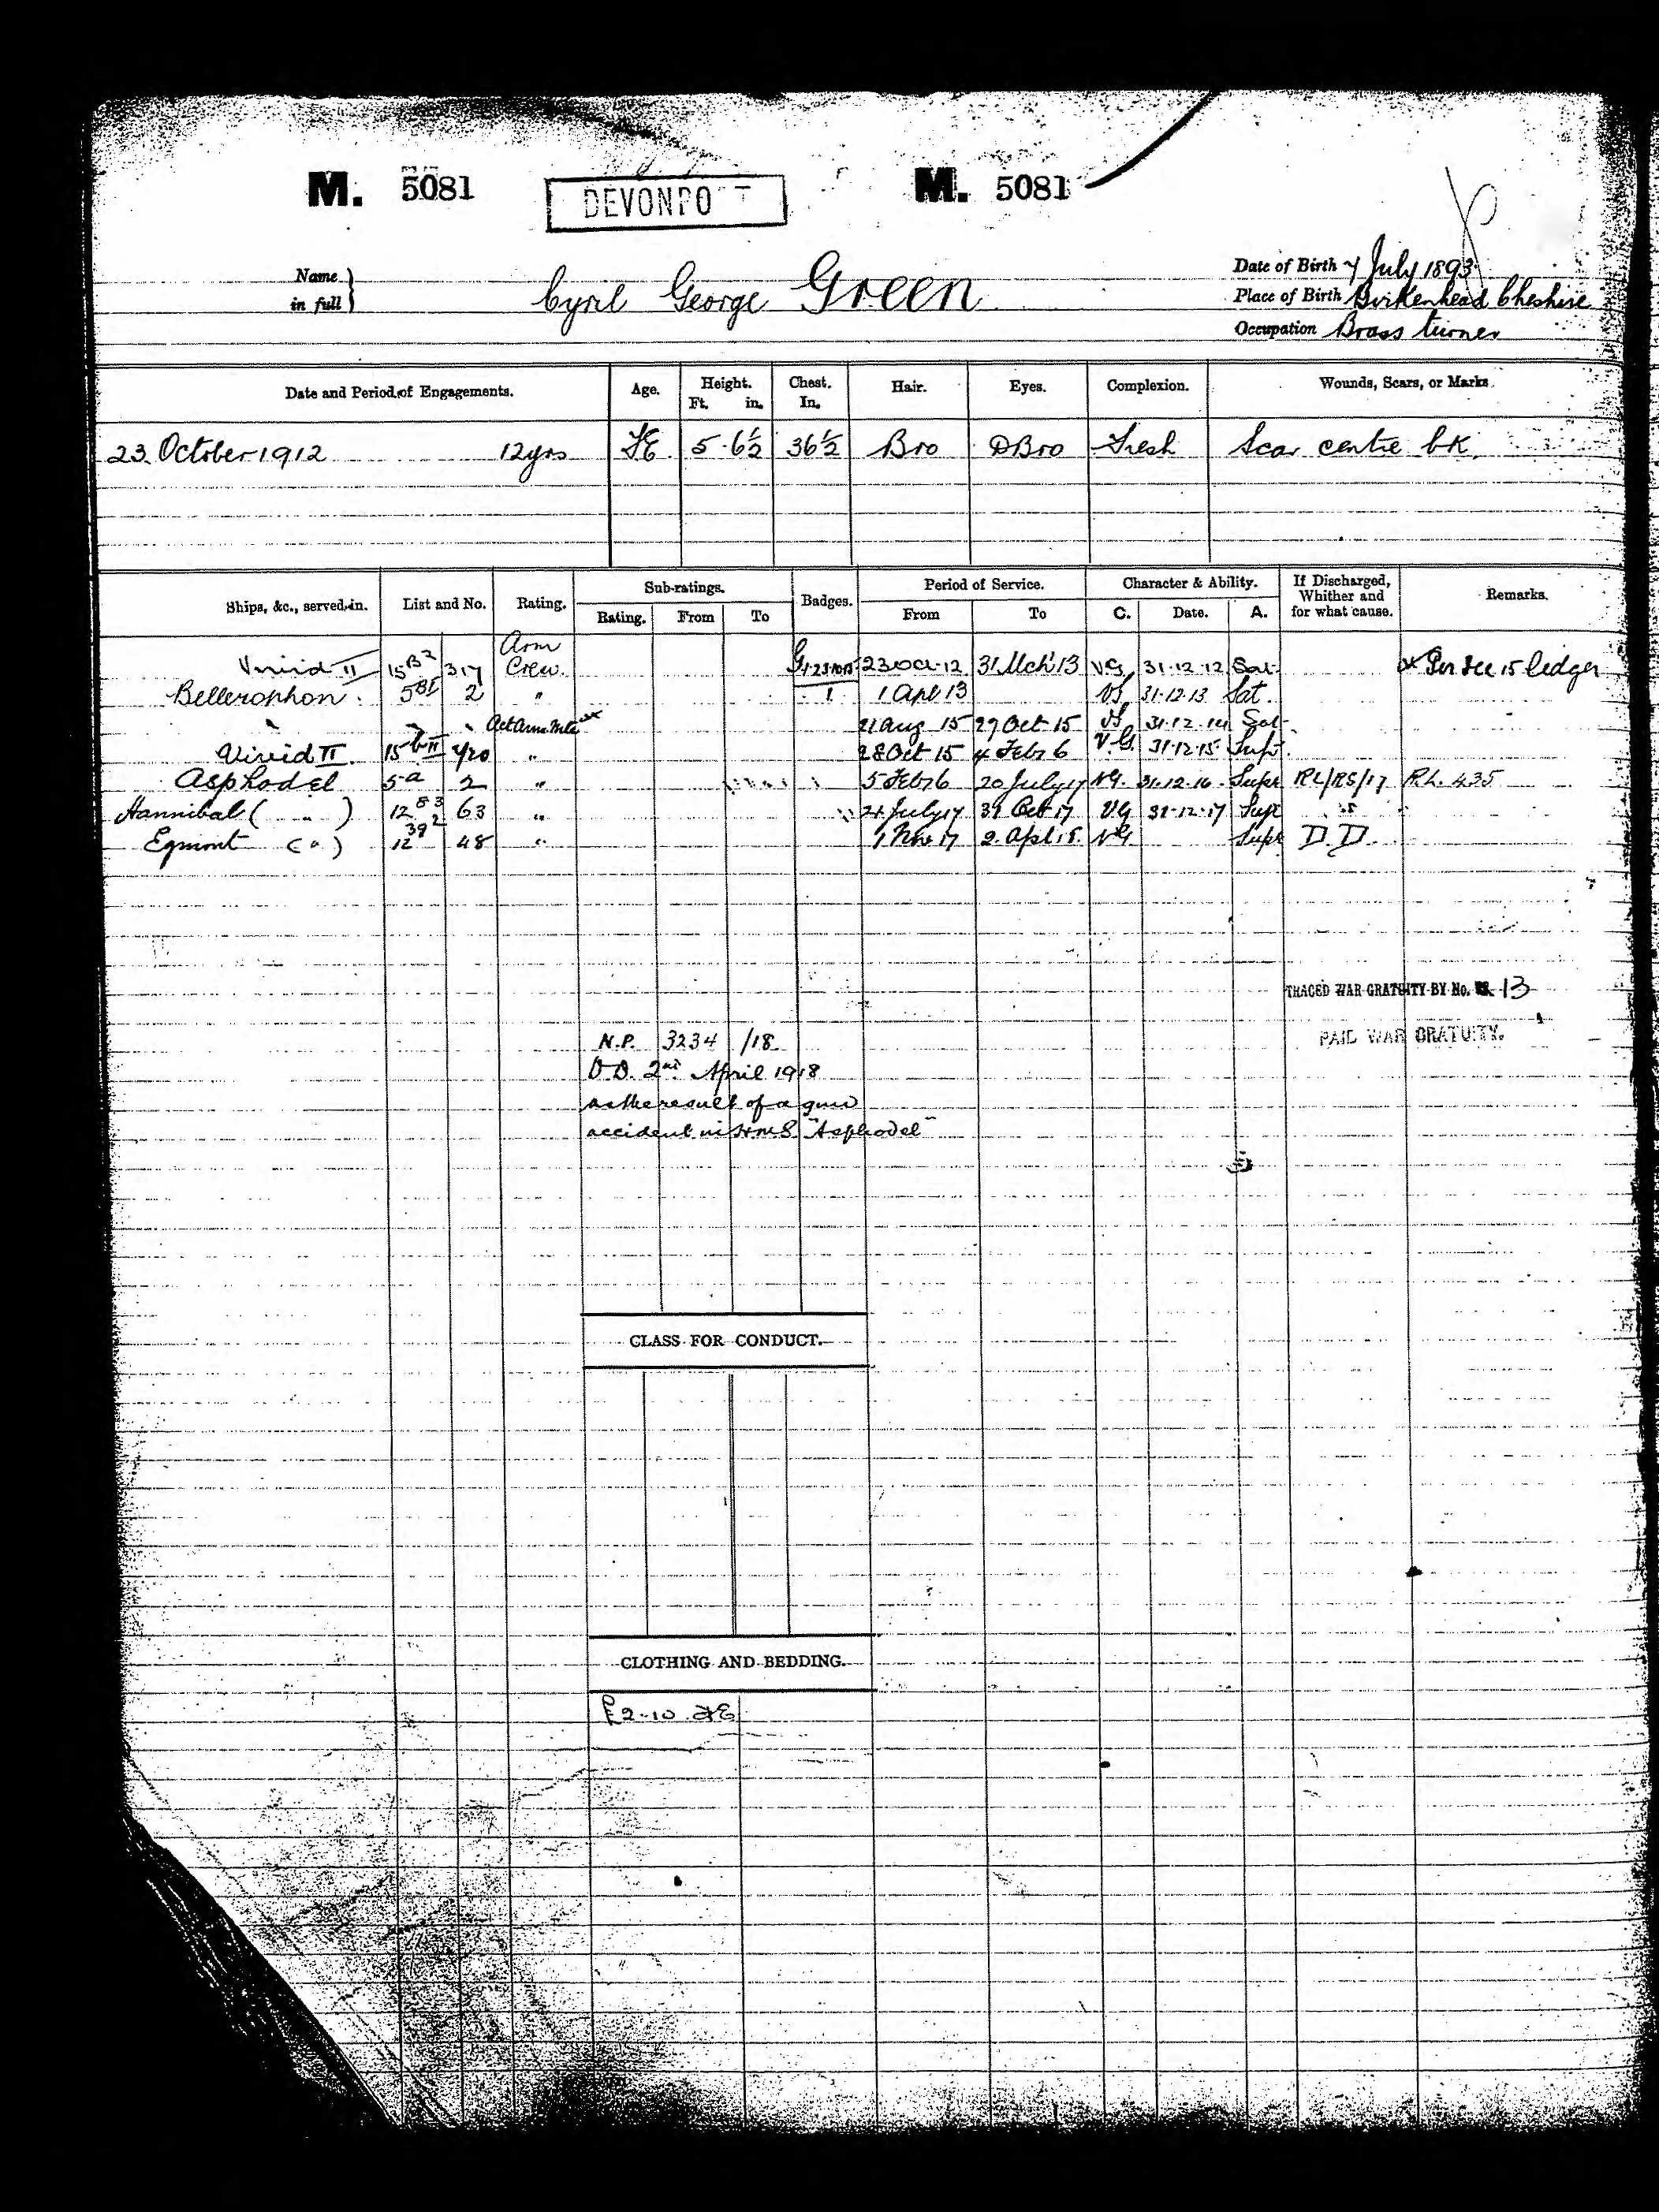 M. 5081 DEVONPO T M. 5081
Name in full } Cyril George Green
Date of Birth 7 July 1893
Place of Birth Birkenhead Cheshire
Occupation Brass turner
Date and Period of Engagements. Age. Height. Ft. in. Chest. In. Hair. Eyes. Complexion. Wounds, Scars, or Marks.
23 October 1912 12yrs FE 5·6½ 36½ Bro DBro Fresh Scar centre bk
Ships, &c., served in. List and No. Rating. Sub-ratings. Rating. From To Badges. Period of Service. From To Character & Ability. C. Date. A. If Discharged, Whither and for what cause. Remarks.
Vivid II 15 B2 317 Arm Crew. 23 Oct 12 31 Mch 13 VG 31·12·12 Sat Per Dec 15 ledger
Bellerophon 5 2 " 1 1 Apl 13 VG 31·12·13 Sat.
" " " Act Arm Mte 21 Aug 15 27 Oct 15 VG 31·12·14 Sat
Vivid II 15 420 " 28 Oct 15 4 Feb 16 V.G. 31·12·15 Supr.
Asphodel 5a 2 " 5 Feb 16 20 July 17 VG. 31·12·16 Supr RL/RS/17 RL. 435
Hannibal ( " ) 12 83 63 " 21 July 17 31 Oct 17 VG 31·12·17 Supr "
Egmont ( " ) 12 392 48 " 1 Nov 17 2 Apl 18 VG Supr D.D.
TRACED WAR GRATUITY BY No. 13
PAID WAR GRATUITY.
N.P. 3234 /18
D.D. 2nd April 1918
as the result of a gun
accident in HMS "Asphodel"
CLASS FOR CONDUCT.
CLOTHING AND BEDDING.
£2-10 FE